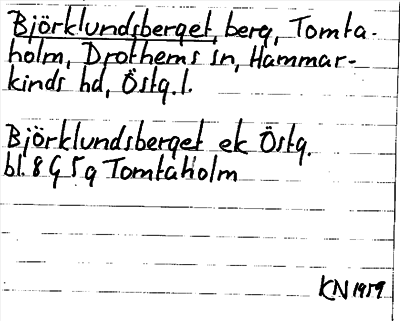 Björklundsberget, berg, Tomta-
holm, Drothems sn, Hammar-
kinds hd, Östg.l.
Björklundsberget ek Östg.
bl. 8 G 5 g Tomtaholm
KN 1959